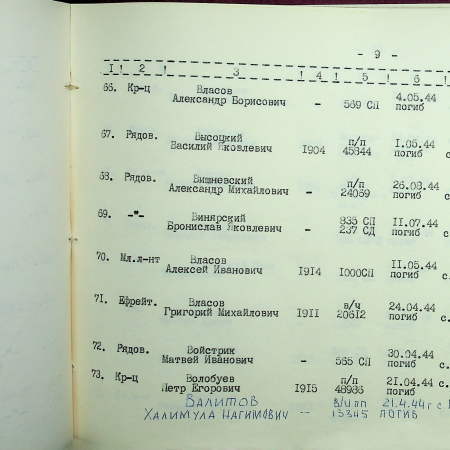 - 9 -
I ! 2 ! 3 ! 4 ! 5 ! 6 !
66. Кр-ц Власов 4.05.44
Александр Борисович - 569 СП погиб
67. Рядов. Высоцкий п/п I.05.44
Василий Яковлевич I904 45844 погиб с.
68. Рядов. Вишневский п/п 26.08.44
Александр Михайлович - 24059 погиб
69. -"- Винярский 835 СП II.07.44
Бронислав Яковлевич - 237 СД погиб с.
70. Мл.л-нт Власов II.05.44
Алексей Иванович I9I4 I000СП погиб с.
71. Ефрейт. Власов в/ч 24.04.44
Григорий Михайлович I9II 20612 погиб с.
72. Рядов. Войстрик 30.04.44
Матвей Иванович - 565 СП погиб с.
73. Кр-ц Волобуев п/п 21.04.44 с.
Петр Егорович I9I5 48936 погиб
ВАЛИТОВ В/Ч ПП 21.4.44г с
ХАЛИМУЛА НАГИМОВИЧ -- 13345 ПОГИБ